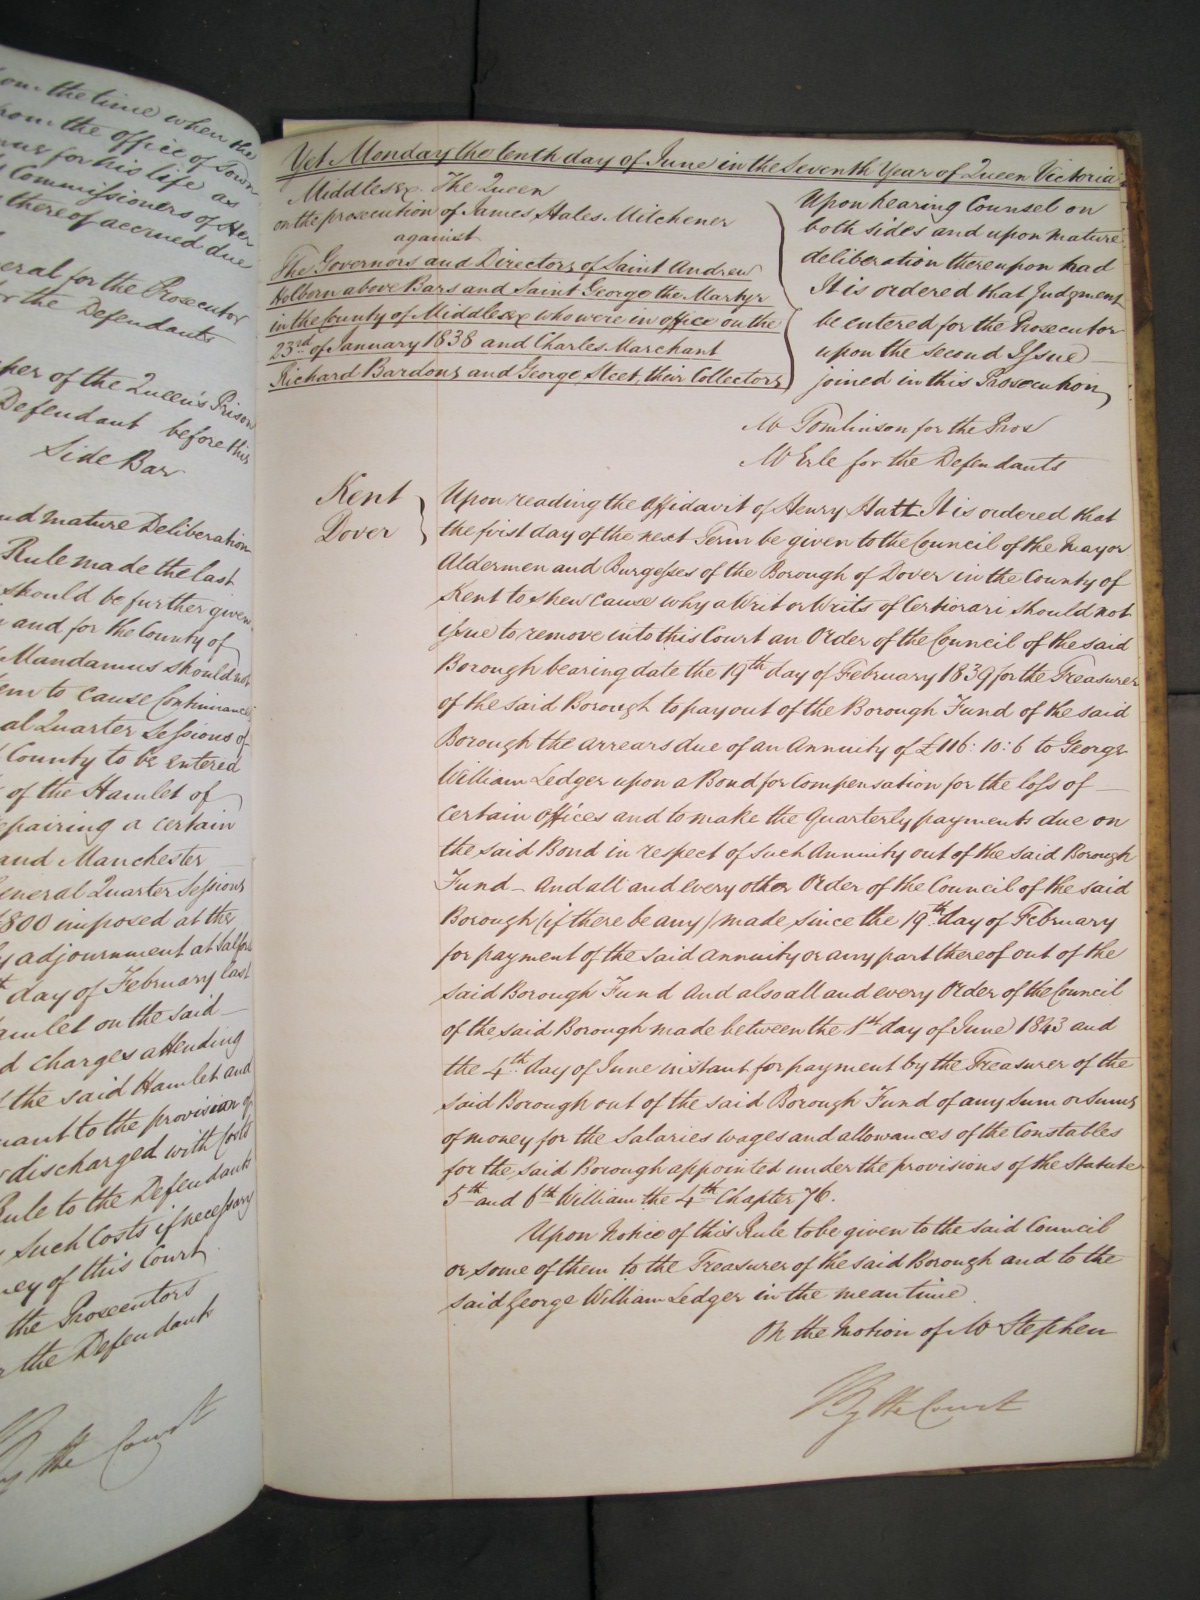 om the time when the
from the office of Town
for his life as
Commissioners of Her
thereof accrued due
eral for the Prosecutor
for the Defendants
per of the Queen's Prison
Defendant before this
Side Bar
nd mature Deliberation
Rule made the last
should be further given
and for the County of
Mandamus should not
em to cause Continuances
al Quarter Sessions of
County to be entered
of the Hamlet of
epairing a certain
and Manchester
eneral Quarter Sessions
800 imposed at the
y adjournment at Salford
day of February last
amlet on the said
d charges attending
the said Hamlet and
uant to the provision of
discharged with Costs
Rule to the Defendants
Such Costs if necessary
ey of this Court
the Prosecutors
the Defendants
By the Court
Yet Monday the tenth day of June in the Seventh Year of Queen Victoria
Middlesex. The Queen
on the prosecution of James Hales Mitchener
against
The Governors and Directors of Saint Andrew
Holborn above Bars and Saint George the Martyr
in the County of Middlesex who were in office on the
23rd of January 1838 and Charles Marchant
Richard Bardons and George Steet, their Collectors
Upon hearing Counsel on
both sides and upon mature
deliberation thereupon had
It is ordered that Judgment
be entered for the Prosecutor
upon the second Issue
joined in this Prosecution
Mr Tomlinson for the Pros
Mr Erle for the Defendants
Kent
Dover
Upon reading the Affidavit of Henry Hatt It is ordered that
the first day of the next Term be given to the Council of the Mayor
Aldermen and Burgesses of the Borough of Dover in the County of
Kent to shew cause why a Writ or Writs of Certiorari should not
issue to remove into this Court an Order of the Council of the said
Borough bearing date the 19th day of February 1839 for the Treasurer
of the said Borough to pay out of the Borough Fund of the said
Borough the arrears due of an Annuity of £116:10:6 to George
William Ledger upon a Bond for Compensation for the loss of
certain offices and to make the Quarterly payments due on
the said Bond in respect of such Annuity out of the said Borough
Fund - And all and every other Order of the Council of the said
Borough (if there be any) made since the 19th day of February
for payment of the said annuity or any part thereof out of the
said Borough Fund And also all and every Order of the Council
of the said Borough made between the 1st day of June 1843 and
the 4th day of June instant for payment by the Treasurer of the
said Borough out of the said Borough Fund of any sum or sums
of money for the Salaries wages and allowances of the Constables
for the said Borough appointed under the provisions of the Statute
5th and 6th William the 4th Chapter 76.
Upon Notice of this Rule to be given to the said Council
or some of them to the Treasurer of the said Borough and to the
said George William Ledger in the mean time
On the Motion of Mr Stephen
By the Court